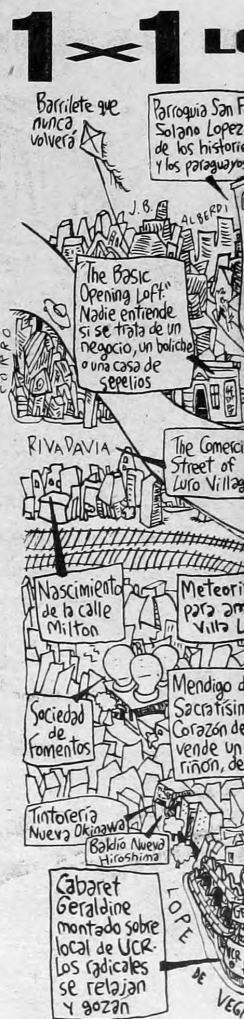 1×1 LO
Barrilete que
nunca
volverá
Parroquia San F
Solano Lopez
de los historie
y los paraguayos
J. B. ALBERDI
"The Basic
Opening Loft."
Nadie entiende
si se trata de un
negocio, un boliche
o una casa de
sepelios
CARRO
RIVADAVIA
The Comerci
Street of
Luro Villag
Nascimiento
de la calle
Milton
Meteori
para am
Villa L
Sociedad
de
fomentos
Mendigo d
Sacratísim
Corazón de
vende un
riñon, de
Tintorería
Nueva Okinawa
Baldío Nueva
Hiroshima
Cabaret
Geraldine
montado sobre
local de UCR.
Los radicales
se relajan
y gozan
LOPE
DE
VEGA
UCR